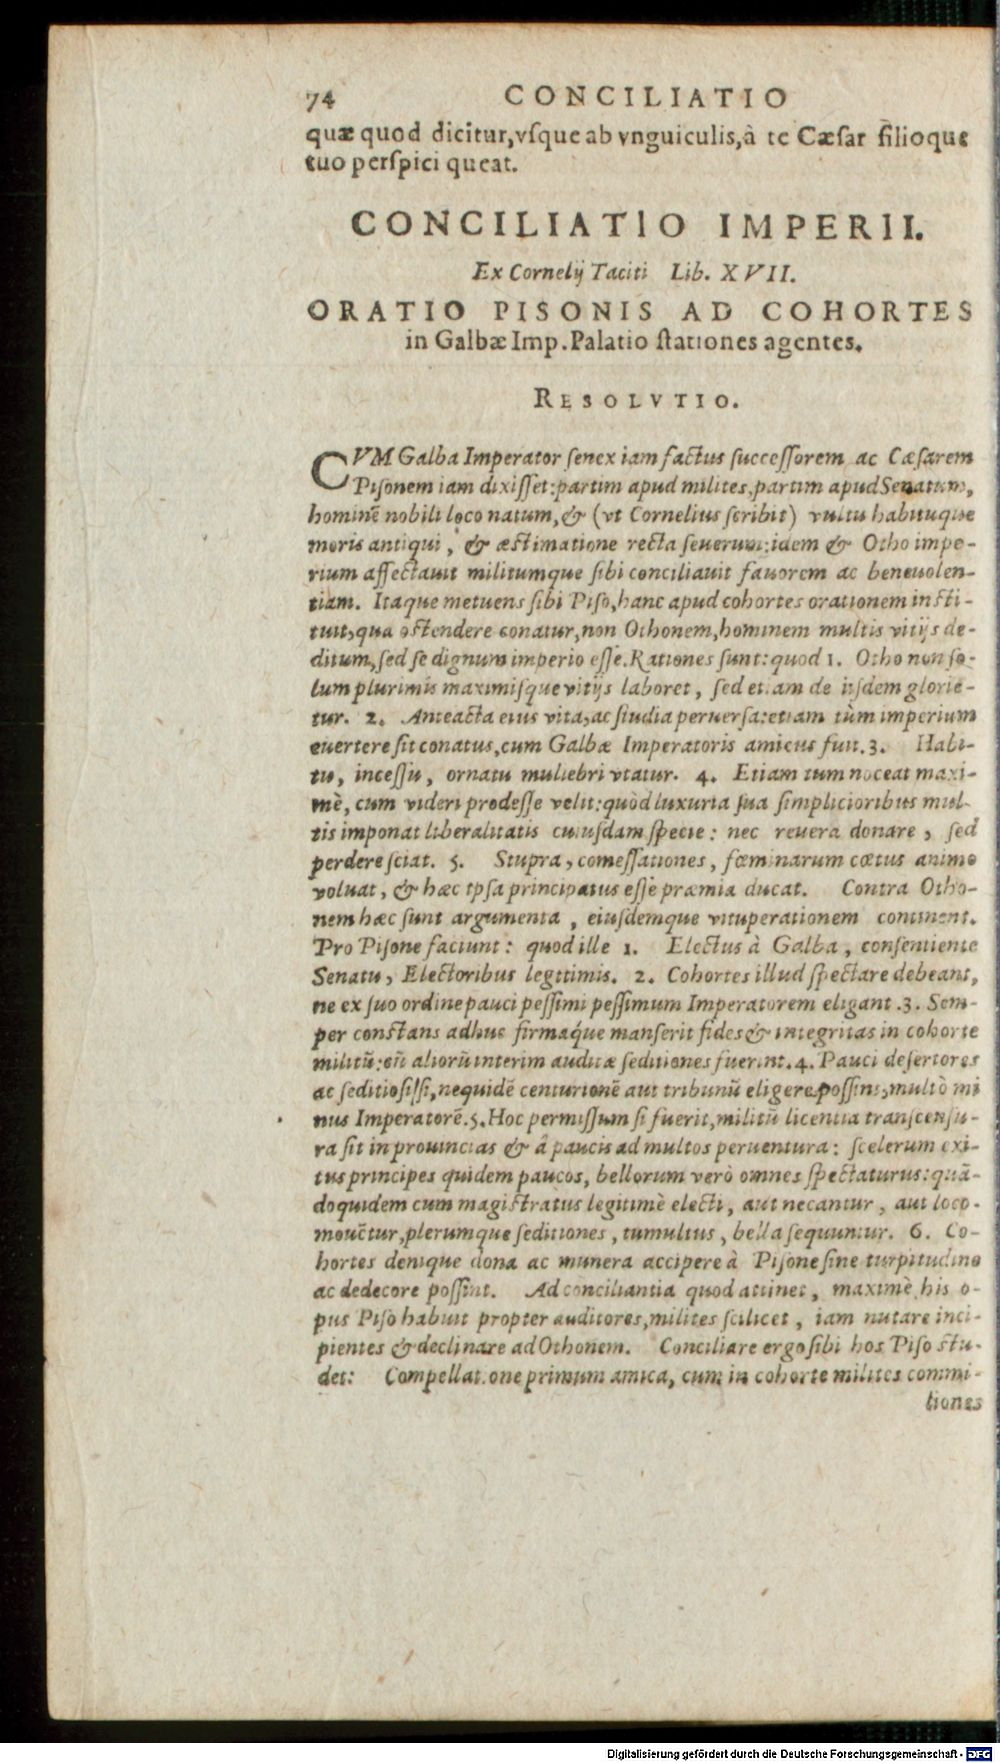 74 CONCILIATIO
quæ quod dicitur, vſque ab vnguiculis, à te Cæſar filioque
tuo perſpici queat.
CONCILIATIO IMPERII.
Ex Cornelij Taciti Lib. XVII.
ORATIO PISONIS AD COHORTES
in Galbæ Imp. Palatio ſtationes agentes.
RESOLVTIO.
CVM Galba Imperator ſenex iam factus ſucceſſorem ac Cæſarem
Piſonem iam dixiſſet: partim apud milites, partim apud Senatum,
hominē nobili loco natum, & (vt Cornelius ſcribit) vultu habituque
moris antiqui, & æſtimatione recta ſeuerum: idem & Otho impe-
rium affectauit militumque ſibi conciliauit fauorem ac beneuolen-
tiam. Itaque metuens ſibi Piſo, hanc apud cohortes orationem inſti-
tuit, qua oſtendere conatur, non Othonem, hominem multis vitijs de-
ditum, ſed ſe dignum imperio eſſe. Rationes ſunt: quod 1. Otho non ſo-
lum plurimis maximiſque vitijs laboret, ſed etiam de iiſdem glorie-
tur. 2. Anteacta eius vita, ac ſtudia peruerſa: etiam tùm imperium
euertere ſit conatus, cum Galbæ Imperatoris amicus fuit. 3. Habi-
tu, inceſſu, ornatu muliebri vtatur. 4. Etiam tum noceat maxi-
mè, cum videri prodeſſe velit: quòd luxuria ſua ſimplicioribus mul-
tis imponat liberalitatis cuiuſdam ſpecie: nec reuera donare, ſed
perdere ſciat. 5. Stupra, comeſſationes, fœminarum cœtus animo
voluat, & hæc ipſa principatus eſſe præmia ducat. Contra Otho-
nem hæc ſunt argumenta, eiuſdemque vituperationem continent.
Pro Piſone faciunt: quod ille 1. Electus à Galba, conſentiente
Senatu, Electoribus legitimis. 2. Cohortes illud ſpectare debeant,
ne ex ſuo ordine pauci peſſimi peſſimum Imperatorem eligant. 3. Sem-
per conſtans adhuc firmaq́ue manſerit fides & integritas in cohorte
militũ: cũ aliorũ interim auditæ ſeditiones fuerint. 4. Pauci deſertores
ac ſeditioſiſſi, nequidē centurionē aut tribunũ eligere poſſint, multò mi
nus Imperatorē. 5. Hoc permiſſum ſi fuerit, militũ licentia tranſcenſu-
ra ſit in prouincias & â paucis ad multos peruentura: ſcelerum exi-
tus principes quidem paucos, bellorum verò omnes ſpectaturus: quā-
doquidem cum magiſtratus legitimè electi, aut necantur, aut loco-
mouētur, plerumque ſeditiones, tumultus, bella ſequuntur. 6. Co-
hortes denique dona ac munera accipere à Piſone ſine turpitudine
ac dedecore poſſint. Ad conciliantia quod attinet, maximè his o-
pus Piſo habuit propter auditores, milites ſcilicet, iam nutare inci-
pientes & declinare ad Othonem. Conciliare ergo ſibi hos Piſo ſtu-
det: Compellatione primum amica, cum in cohorte milites commi-
litones
Digitalisierung gefördert durch die Deutsche Forschungsgemeinschaft - DFG